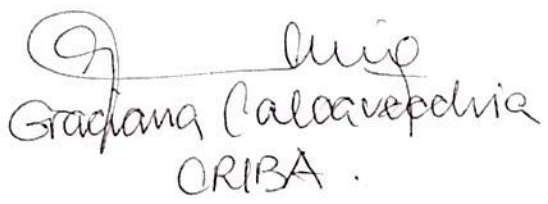 Graciana Calcavecchia
CRIBA.